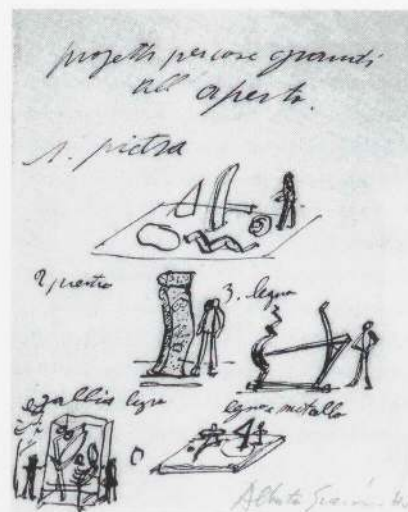 progetti per cose grandi
all'aperto.
1. pietra
2 pietra
3. legno
legno
legno e metallo
Alberto